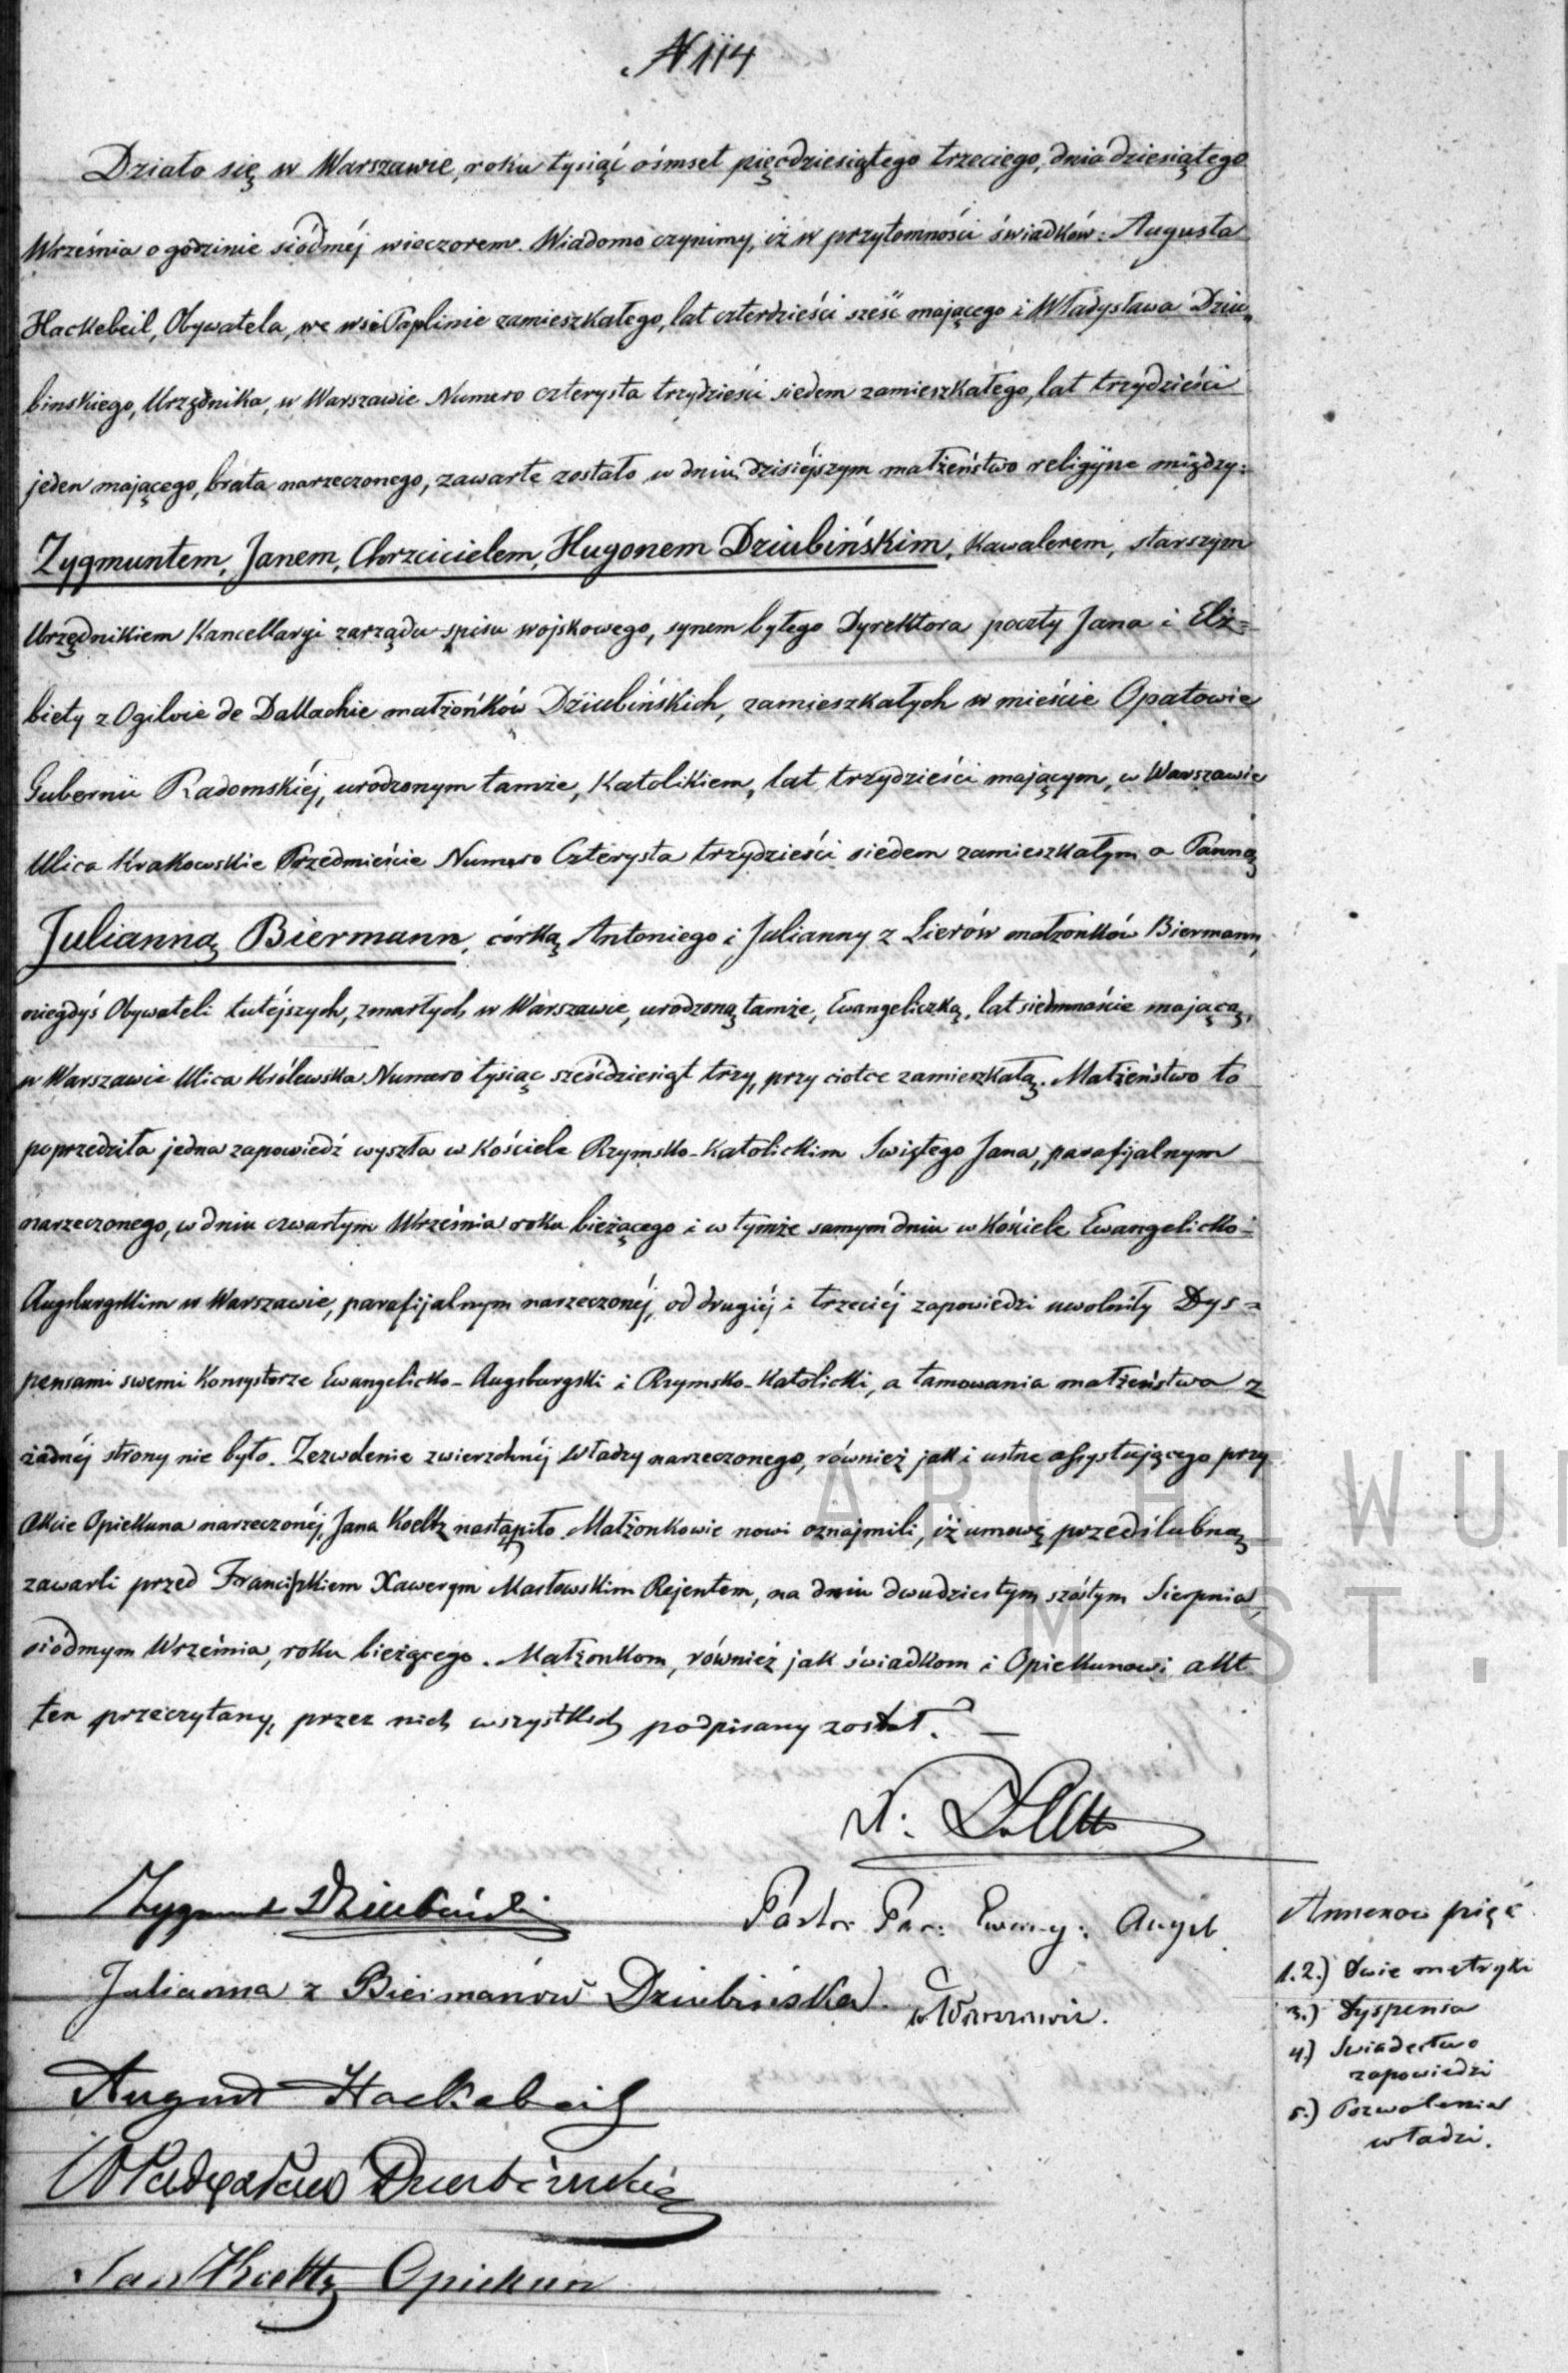 N 114
Działo się w Warszawie, roku tysiąć ośmset pięćdziesiątego trzeciego, dnia dziesiątego
Września o godzinie siódméj wieczorem. Wiadomo czynimy, iż w przytomności świadków: Augusta
Hackebeil, Obywatela, we wsi Paplinie zamieszkałego, lat czterdzieści sześć mającego i Władysława Dziu„
binskiego, Urzędnika, w Warszawie Numero czterysta trzydzieści siedem zamieszkałego, lat trzydzieści
jeden mającego, brata narzeczonego, zawarte zostało w dniu dzisiéjszym małżeństwo religijne między:
Zygmuntem, Janem, Chrzcicielem, Hugonem Dziubińskim, Kawalerem, starszym
Urzędnikiem Kancellaryi zarządu spisu wojskowego, synem byłego Dyrektora poczty Jana i Elż=
biety z Ogilvie de Dallachie małżonków Dziubińskich, zamieszkałych w mieście Opatowie
Gubernii Radomskiéj, urodzonym tamże, Katolikiem, lat trzydzieści mającym, w Warszawie
Ulica Krakowskie Przedmieście Numero Czterysta trzydzieści siedem zamieszkałym a Panną
Julianną Biermann, córką Antoniego i Julianny z Lierów małżonków Biermann,
niegdyś Obywateli tutéjszych, zmarłych w Warszawie, urodzoną tamże, Ewangeliczką, lat siedmnaście mającą,
w Warszawie Ulica Królewska Numero tysiąc sześćdziesiąt trzy, przy ciotce zamieszkałą. Małżeństwo to
poprzedziła jedna zapowiedź wyszła w Kościele Rzymsko-Katolickim Swiętego Jana, parafijalnym
narzeczonego, w dniu czwartym Września roku bieżącego i w tymże samym dniu w Kościele Ewangelicko-
Augsburgskim w Warszawie, parafijalnym narzeczonéj, od drugiéj i trzeciéj zapowiedzi uwolniły Dys=
pensami swemi Konsystorze Ewangelicko-Augsburgski i Rzymsko-Katolicki, a tamowania małżeństwa z
żadnéj strony nie było. Zezwolenie zwierzchnéj Władzy narzeczonego, również jak i ustne assystującego przy
Akcie Opiekuna narzeczonéj, Jana Koeltz nastąpiło. Małżonkowie nowi oznajmili, iż umowę przedślubną
zawarli przed Franciszkiem Xawerym Masłowskim Rejentem, na dniu dwudziestym szóstym Sierpnia,
siódmym Września, roku bieżącego. Małżonkom, również jak świadkom i Opiekunowi akt
ten przeczytany, przez nich wszystkich podpisany został. —
Zygmunt Dziubiński
Pastor Par: Ewang: Augsb.
w Warszawie.
Julianna z Biermanów Dziubińska.
August Hackebeil
Władysław Dziubiński
Jan Koeltz Opiekun
Annexow pięć
1.2.) Dwie metryki
3.) Dyspensa
4.) Swiadectwo
zapowiedzi
5.) Pozwolenie
władzi.
ARCHIWU
M ST.